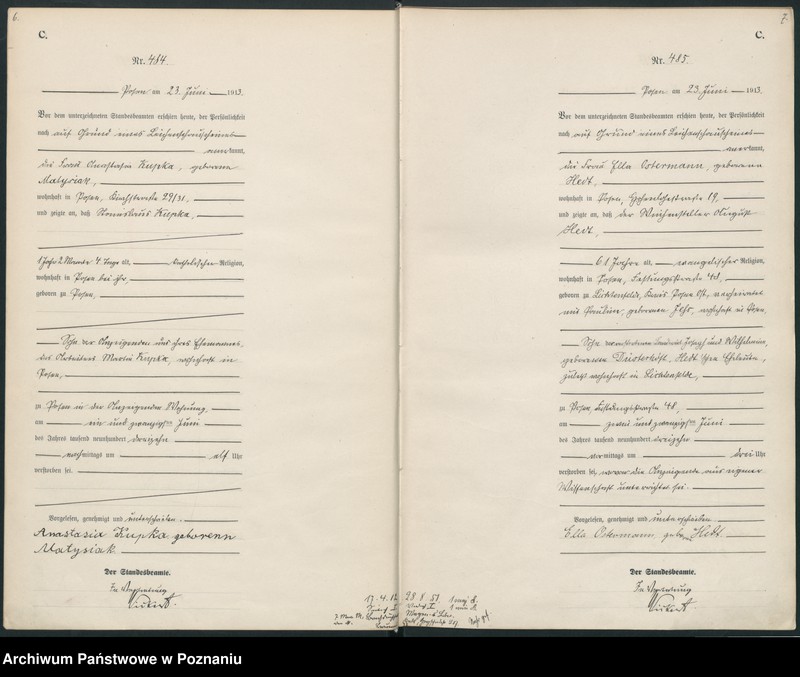 6.
C.
Nr. 484.
Posen am 23. Juni 1913.
Vor dem unterzeichneten Standesbeamten erschien heute, der Persönlichkeit
nach auf Grund eines Leichenschauscheines
anerkannt,
die Frau Anastasia Kupka, geborene
Matysiak,
wohnhaft in Posen, Bachstraße 29/31,
und zeigte an, daß Stanislaus Kupka,
1 Jahr 2 Monate 4 Tage alt, katholischer Religion,
wohnhaft in Posen bei ihr,
geboren zu Posen,
Sohn der Anzeigenden und ihres Ehemannes,
des Arbeiters Martin Kupka, wohnhaft in
Posen,
zu Posen in der Anzeigenden Wohnung,
am ein und zwanzigsten Juni
des Jahres tausend neunhundert dreizehn
nachmittags um elf Uhr
verstorben sei.
Vorgelesen, genehmigt und unterschrieben.
Anastasia Kupka geborenn
Matysiak
Der Standesbeamte.
In Vertretung
7.
C.
Nr. 485.
Posen am 23. Juni 1913.
Vor dem unterzeichneten Standesbeamten erschien heute, der Persönlichkeit
nach auf Grund eines Leichenschauscheines
anerkannt,
die Frau Ella Ostermann, geborene
Hedt,
wohnhaft in Posen, 19,
und zeigte an, daß der Weichensteller August
Hedt,
61 Jahre alt, evangelischer Religion,
wohnhaft in Posen, Festungsstraße 48,
geboren zu Lichtenfelde, Kreis Posen Ost, verheiratet
mit Pauline, geborenen wohnhaft in Posen
Sohn der verstorbenen Joseph und Wilhelmine,
geborenen Hedt'schen Eheleute,
zuletzt wohnhaft in Lichtenfelde,
zu Posen, Festungsstraße 48,
am zwei und zwanzigsten Juni
des Jahres tausend neunhundert dreizehn
vormittags um drei Uhr
verstorben sei, wovon die Anzeigende aus eigener
Wissenschaft unterrichtet sei.
Vorgelesen, genehmigt und unterschrieben
Ella Ostermann geborene Hedt.
Der Standesbeamte.
In Vertretung
Archiwum Państwowe w Poznaniu